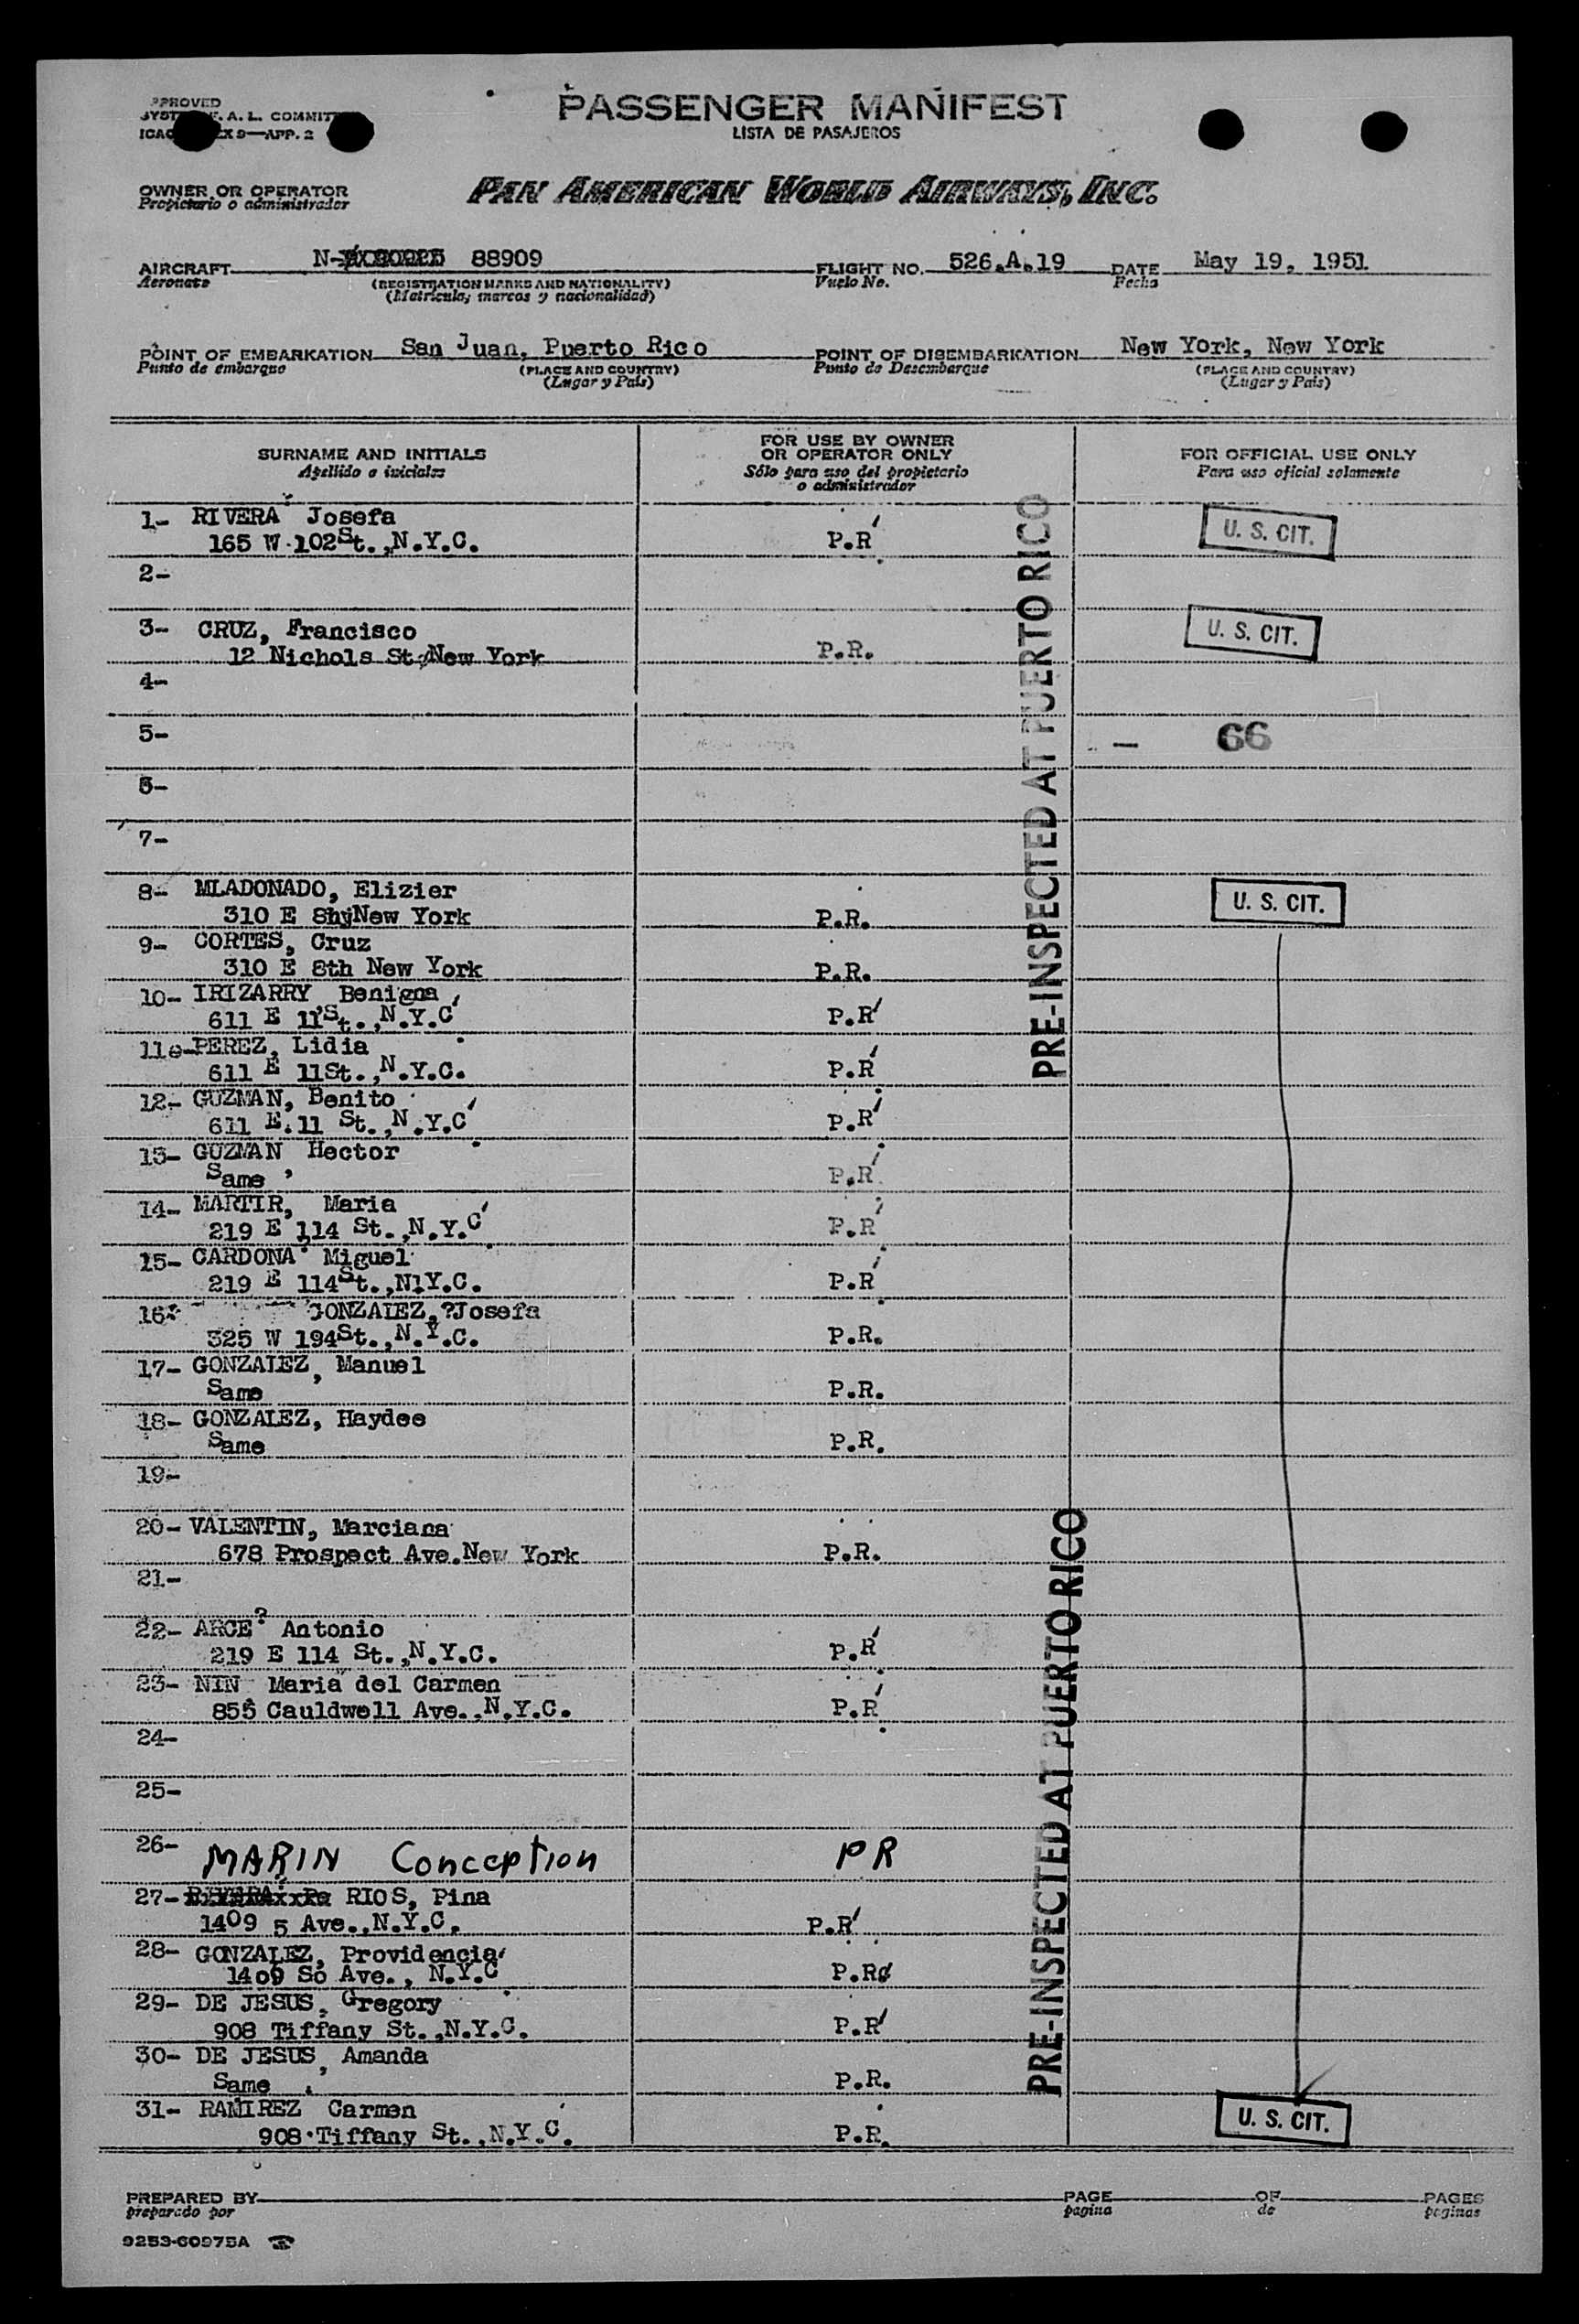 PASSENGER MANIFEST
LISTA DE PASAJEROS
PPROVED
SYST F. A. L. COMMIT
ICAO EX 9—APP. 2
OWNER OR OPERATOR
Propietario o administrador
PAN AMERICAN WORLD AIRWAYS, INC.
AIRCRAFT N- 88909
Aeronate
(REGISTRATION MARKS AND NATIONALITY)
(Matricula, marcas y nacionalidad)
FLIGHT NO. 526.A.19
Vuelo No.
DATE May 19, 1951
Fecha
POINT OF EMBARKATION San Juan, Puerto Rico
Punto de embarque
(PLACE AND COUNTRY)
(Lugar y País)
POINT OF DISEMBARKATION New York, New York
Punto de Desembarque
(PLACE AND COUNTRY)
(Lugar y País)
SURNAME AND INITIALS
Apellido e iniciales
FOR USE BY OWNER
OR OPERATOR ONLY
Sólo para uso del propietario
o administrador
FOR OFFICIAL USE ONLY
Para uso oficial solamente
1- RIVERA Josefa
165 W 102St.,N.Y.C. P.R U. S. CIT.
2-
3- CRUZ, Francisco U. S. CIT.
12 Nichols St New York P.R.
4-
5- — 66
6-
7-
8- MLADONADO, Elizier U. S. CIT.
310 E 8hyNew York P.R.
9- CORTES, Cruz
310 E 8th New York P.R.
10- IRIZARRY Benigna
611 E 11St.,N.Y.C P.R
11e-PEREZ, Lidia
611 E 11St.,N.Y.C. P.R
12- GUZMAN, Benito
611 E.11 St.,N.Y.C P.R
13- GUZMAN Hector
Same P.R
14- MARTIR, Maria
219 E 114 St.,N.Y.C P.R
15- CARDONA Miguel
219 E 114St.,N1Y.C. P.R
16- GONZALEZ,?Josefa
325 W 194St.,N.Y.C. P.R.
17- GONZALEZ, Manuel
Same P.R.
18- GONZALEZ, Haydee
Same P.R.
19-
20- VALENTIN, Marciana
678 Prospect Ave.New York P.R.
21-
22- ARCE? Antonio
219 E 114 St.,N.Y.C. P.R
23- NIN Maria del Carmen
855 Cauldwell Ave.,N.Y.C. P.R
24-
25-
26- MARIN Conception PR
27- RIOS, Pina
1409 5 Ave.,N.Y.C. P.R
28- GONZALEZ, Providencia
1409 So Ave., N.Y.C P.R
29- DE JESUS, Gregory
908 Tiffany St.,N.Y.C. P.R
30- DE JESUS, Amanda
Same P.R.
31- RAMIREZ Carmen U. S. CIT.
908 Tiffany St.,N.Y.C. P.R.
PRE-INSPECTED AT PUERTO RICO
PRE-INSPECTED AT PUERTO RICO
PREPARED BY
preparado por
PAGE
pagina
OF
de
PAGES
paginas
9253-60975A